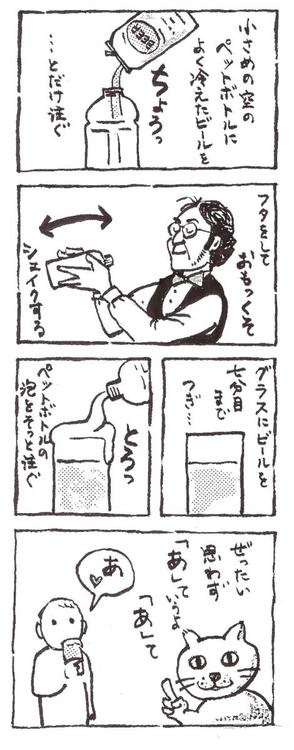 小さめの空の
ペットボトルに
よく冷えたビールを
ちょろっ
…とだけ注ぐ
フタをして
おもっくそ
シェイクする
グラスにビールを
七分目
まで
つぎ…
とろっ
ペットボトルの
泡をそっと注ぐ
ぜったい
思わず
「あ」て
いうよ
「あ」て
あ♡